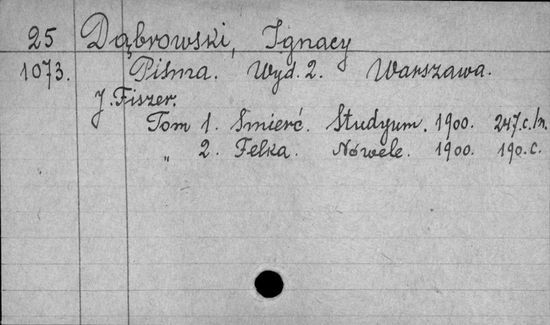 25 Dąbrowski, Ignacy
1073. Pisma. Wyd. 2. Warszawa.
J. Fiszer.
Tom 1. Śmierć. Studyum. 1900. 247.c./n.
„ 2. Felka. Nowele. 1900. 190.c.